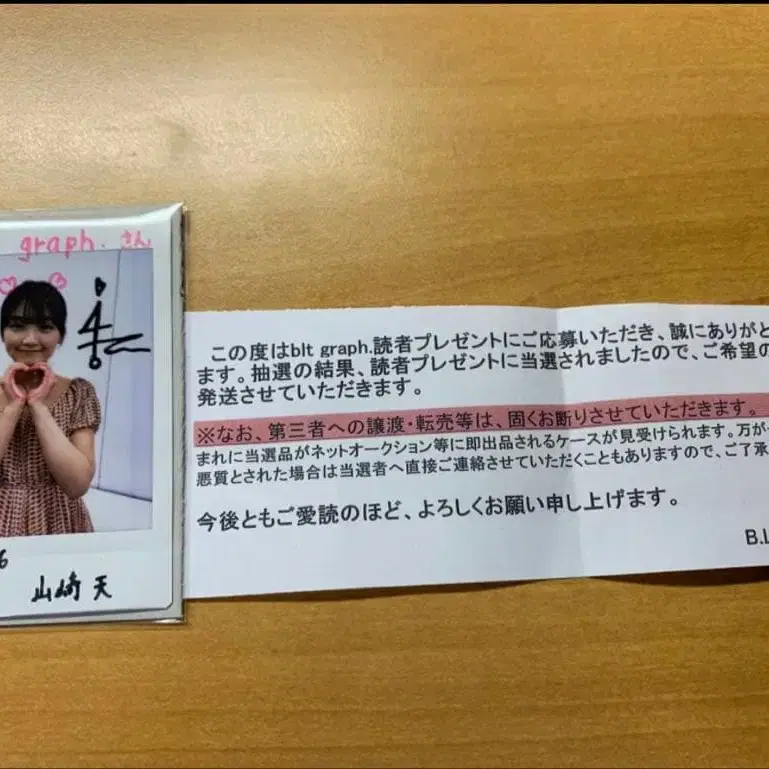 graph. さん
6
山﨑 天
この度はblt graph.読者プレゼントにご応募いただき、誠にありがと
ます。抽選の結果、読者プレゼントに当選されましたので、ご希望の
発送させていただきます。
※なお、第三者への譲渡・転売等は、固くお断りさせていただきます。
まれに当選品がネットオークション等に即出品されるケースが見受けられます。万が
悪質とされた場合は当選者へ直接ご連絡させていただくこともありますので、ご了承
今後ともご愛読のほど、よろしくお願い申し上げます。
B.L